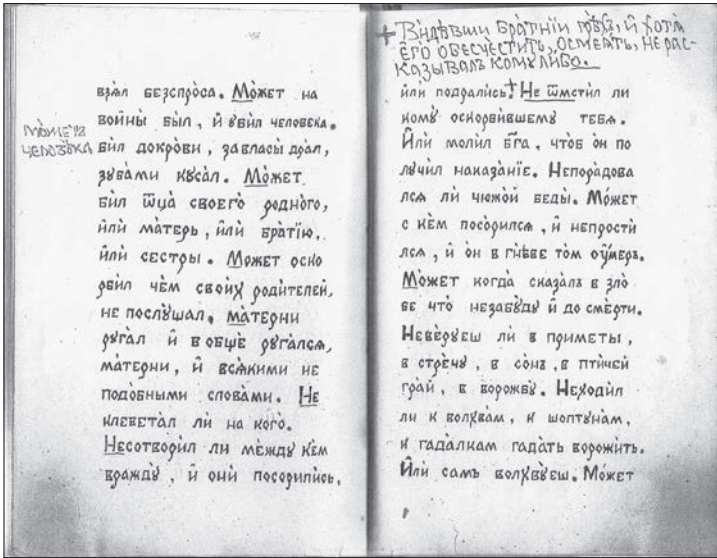 взя́л безспро́са. Мо́жет на
войны̀ был, и҆ уби́л человека.
человѣка
би́л докро́ви, завласы̀ дра́л,
зуба́ми куса́л. Мо́жет
би́л ѿца̀ своего̀ родно́го,
и҆лѝ ма́терь, и҆лѝ бра́тїю,
и҆лѝ сестры̀. Мо́жет оско
рби́л че́м свои́х роди́телей,
не послу́шал. ма́терни
руга́л и҆ в о́бще руга́лся,
ма́терни, и҆ вся́кими не
подо́бными слова́ми. Не
клевета́л ли на кого̀.
Несотвори́л ли ме́жду кѐм
вражду̀, и҆ онѝ посори́лись,
+ Ви́дѣвши бра́тнїи грѣх, и҆ хотя̀
є҆го̀ обесчестить, осмея́ть, не рас-
ка́зывалъ кому́ либо.
и҆лѝ подрали́сь+ Не ѿмсти́л ли
кому̀ оскорби́вшему тебѧ̀.
И҆лѝ моли́л бг҃а, что́б о́н по
лучи́л наказа́нїе. Непора́дова
лся ли чюжо́й беды̀. Мо́жет
с ке́м посо́рился, и҆ непрости́
лся, и҆ о́н в гнѣ́ве то́м оу҆́меръ.
Мо́жет когда̀ сказа́лъ в зло́
бе что̀ незабу́ду и҆ до сме́рти.
Неве́руеш лѝ в приме́ты,
в стре́чу, в со́нъ, в пти́чей
гра́й, в ворожбу̀. Неходи́л
ли к волхва́м, к шоптуна́м,
к гада́лкам гада́ть ворожи́ть.
И҆лѝ самъ волхву́еш. Мо́жет